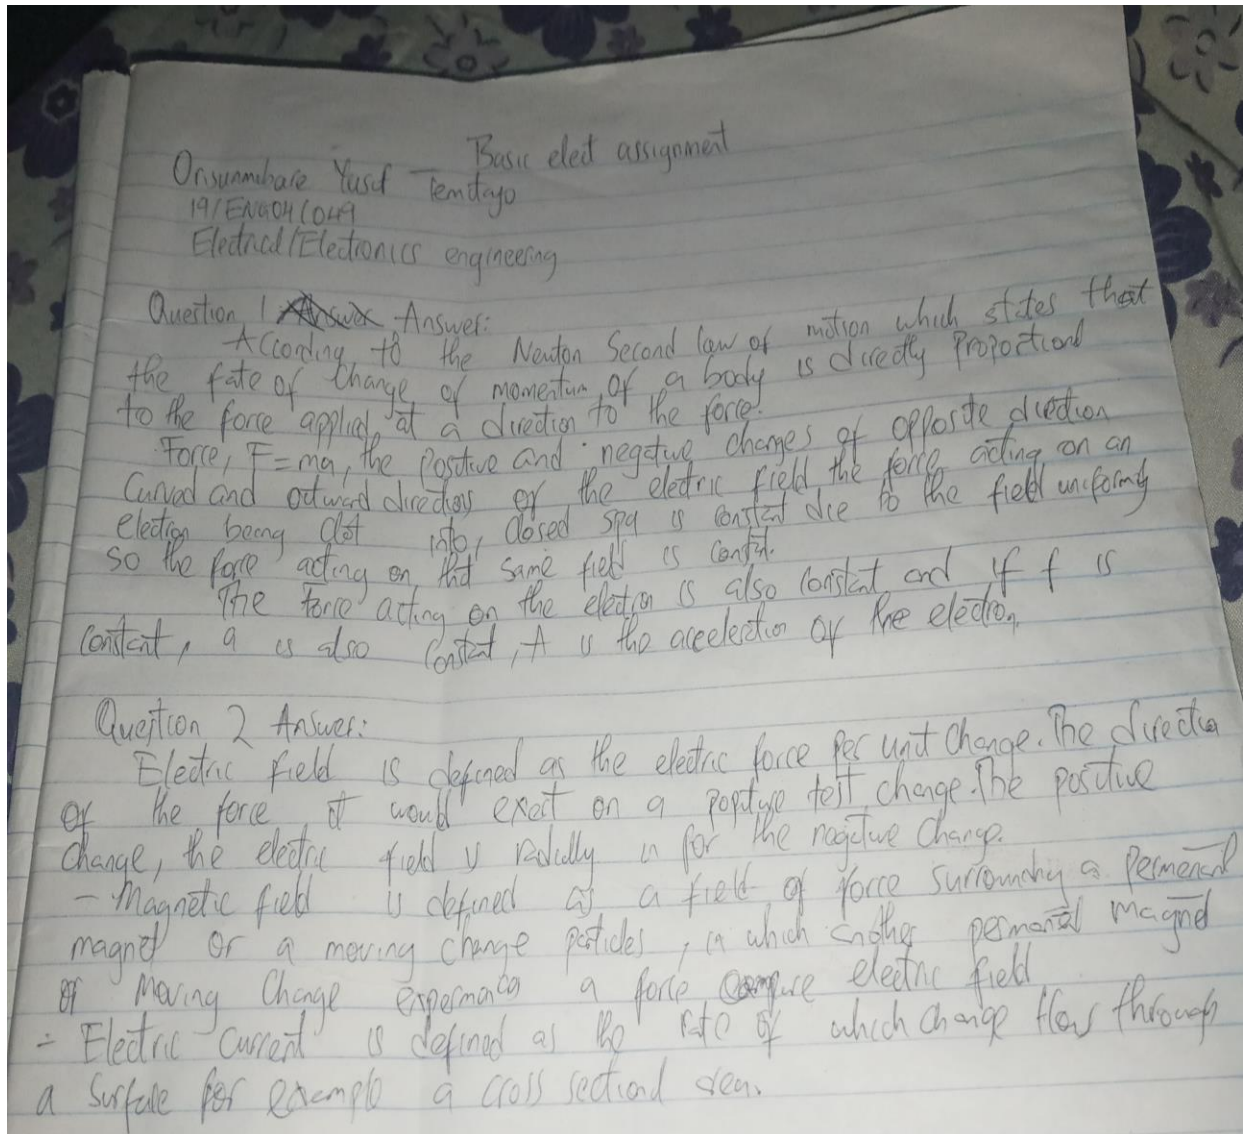 Basic elect assignment
Orisunmibare Yusuf Temitayo
19/ENG04/049
Electrical/Electronics engineering
Question 1 Answer:
According to the Newton Second law of motion which states that
the rate of change of momentum of a body is directly proportional
to the force applied at a direction to the force.
Force, F=ma, the positive and negative charges of opposite direction
curved and outward directions of the electric field the force acting on an
electron being into, closed is constant due to the field uniformly
so the force acting on that same field is
The force acting on the electron is also constant and if f is
constant, a is also constant, A is the acceleration of the electron.
Question 2 Answer:
Electric field is defined as the electric force per unit change. The direction
of the force it would exert on a positive test change. The positive
change, the electric field is radially in for the negative change.
- Magnetic field is defined as a field of force surrounding a permenent
magnet or a moving change particles, in which another permanent magnet
or moving change a force electric field
- Electric current is defined as the rate of which change flow through
a surface for example a cross sectional area.